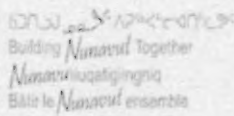 Building Nunavut Together
Nunavuliuqatigiingniq
Bâtir le Nunavut ensemble